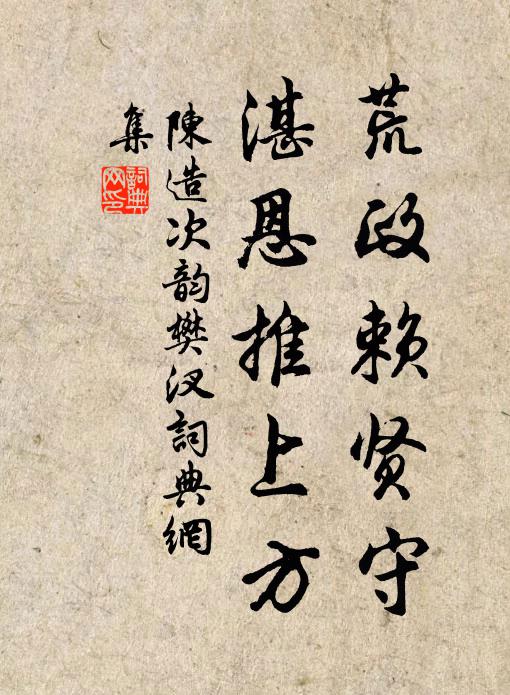 荒政赖贤守
湛恩推上方
陳造次韵樊汉詞典網
集
詞典网印